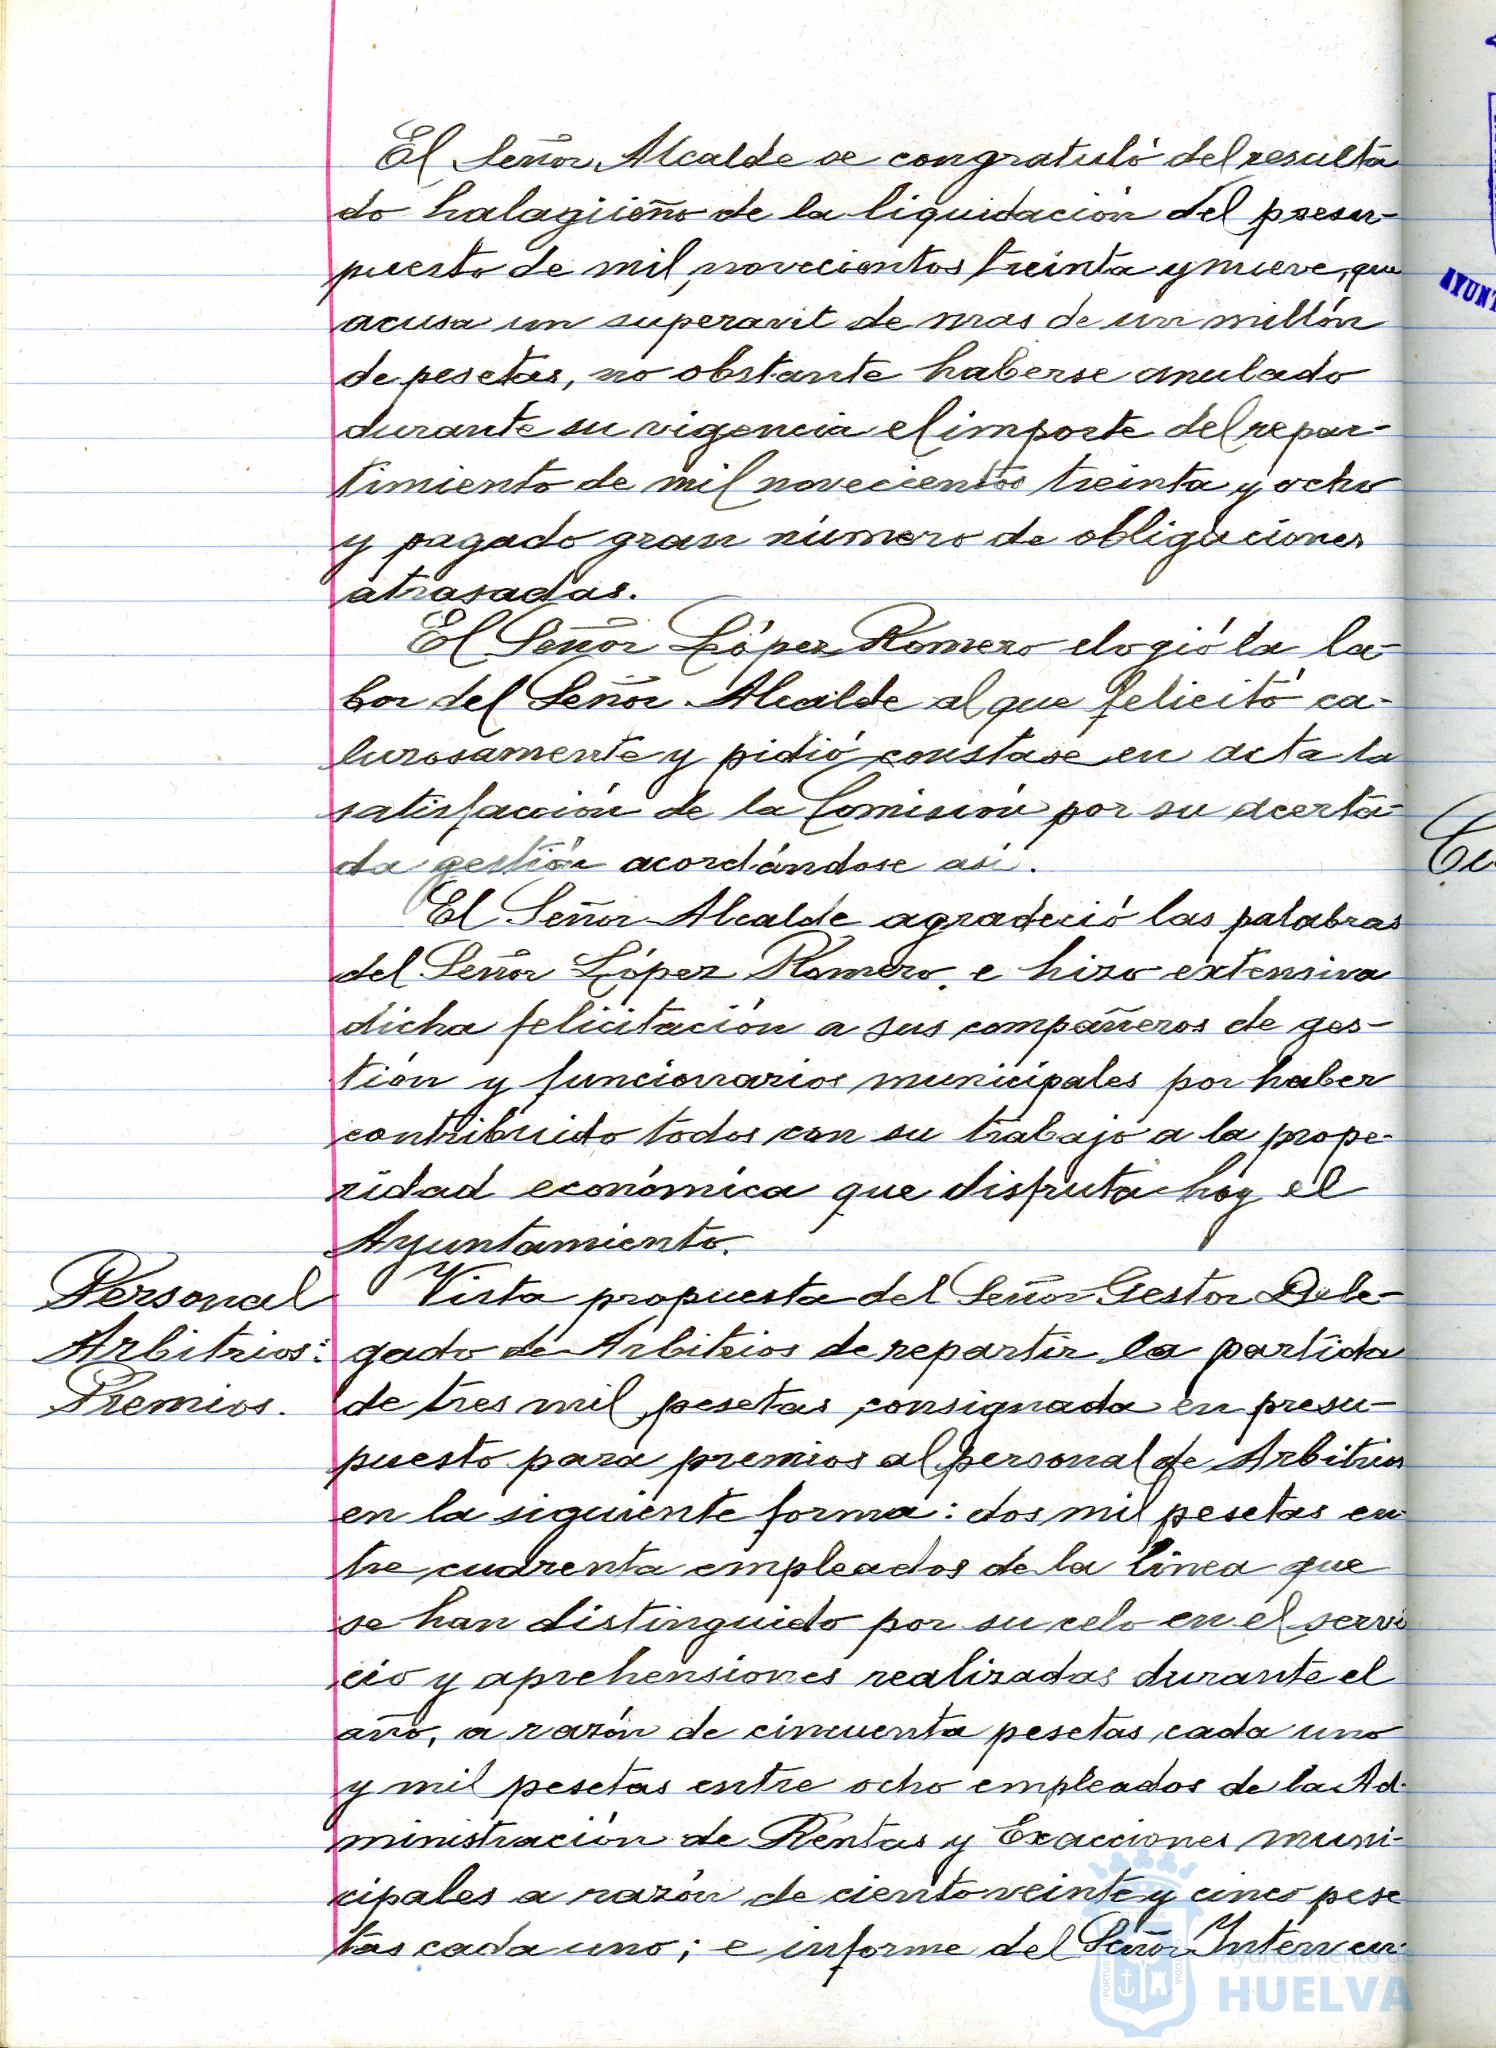 El Señor Alcalde se congratuló del resulta
do halagüeño de la liquidación del presu-
puesto de mil novecientos treinta y nueve, que
acusa un superavit de mas de un millón
de pesetas, no obstante haberse anulado
durante su vigencia el importe del repar-
timiento de mil novecientos treinta y ocho
y pagado gran número de obligaciones
atrasadas.
El Señor López Romero elogió la la-
bor del Señor Alcalde al que felicitó ca-
lurosamente y pidió constase en acta la
satisfacción de la Comisión por su acerta-
da gestión acordándose asi.
El Señor Alcalde agradeció las palabras
del Señor López Romero, e hizo extensiva
dicha felicitación a sus compañeros de ges-
tión y funcionarios municipales por haber
contribuido todos con su trabajo a la prope-
ridad económica que disfruta hoy el
Ayuntamiento.
Personal
Arbitrios:
Premios.
Vista propuesta del Señor Gestor Dele-
gado de Arbitrios de repartir la partida
de tres mil pesetas consignada en presu-
puesto para premios al personal de Arbitrios
en la siguiente forma: dos mil pesetas en-
tre cuarenta empleados de la linea que
se han distinguido por su celo en el servi
cio y aprehensiones realizadas durante el
año, a razón de cincuenta pesetas cada uno
y mil pesetas entre ocho empleados de la Ad-
ministración de Rentas y Exacciones muni-
cipales a razón de ciento veinte y cinco pese
tas cada uno; e informe del Señor Interven-
Ayuntamiento de
HUELVA
AYUNT